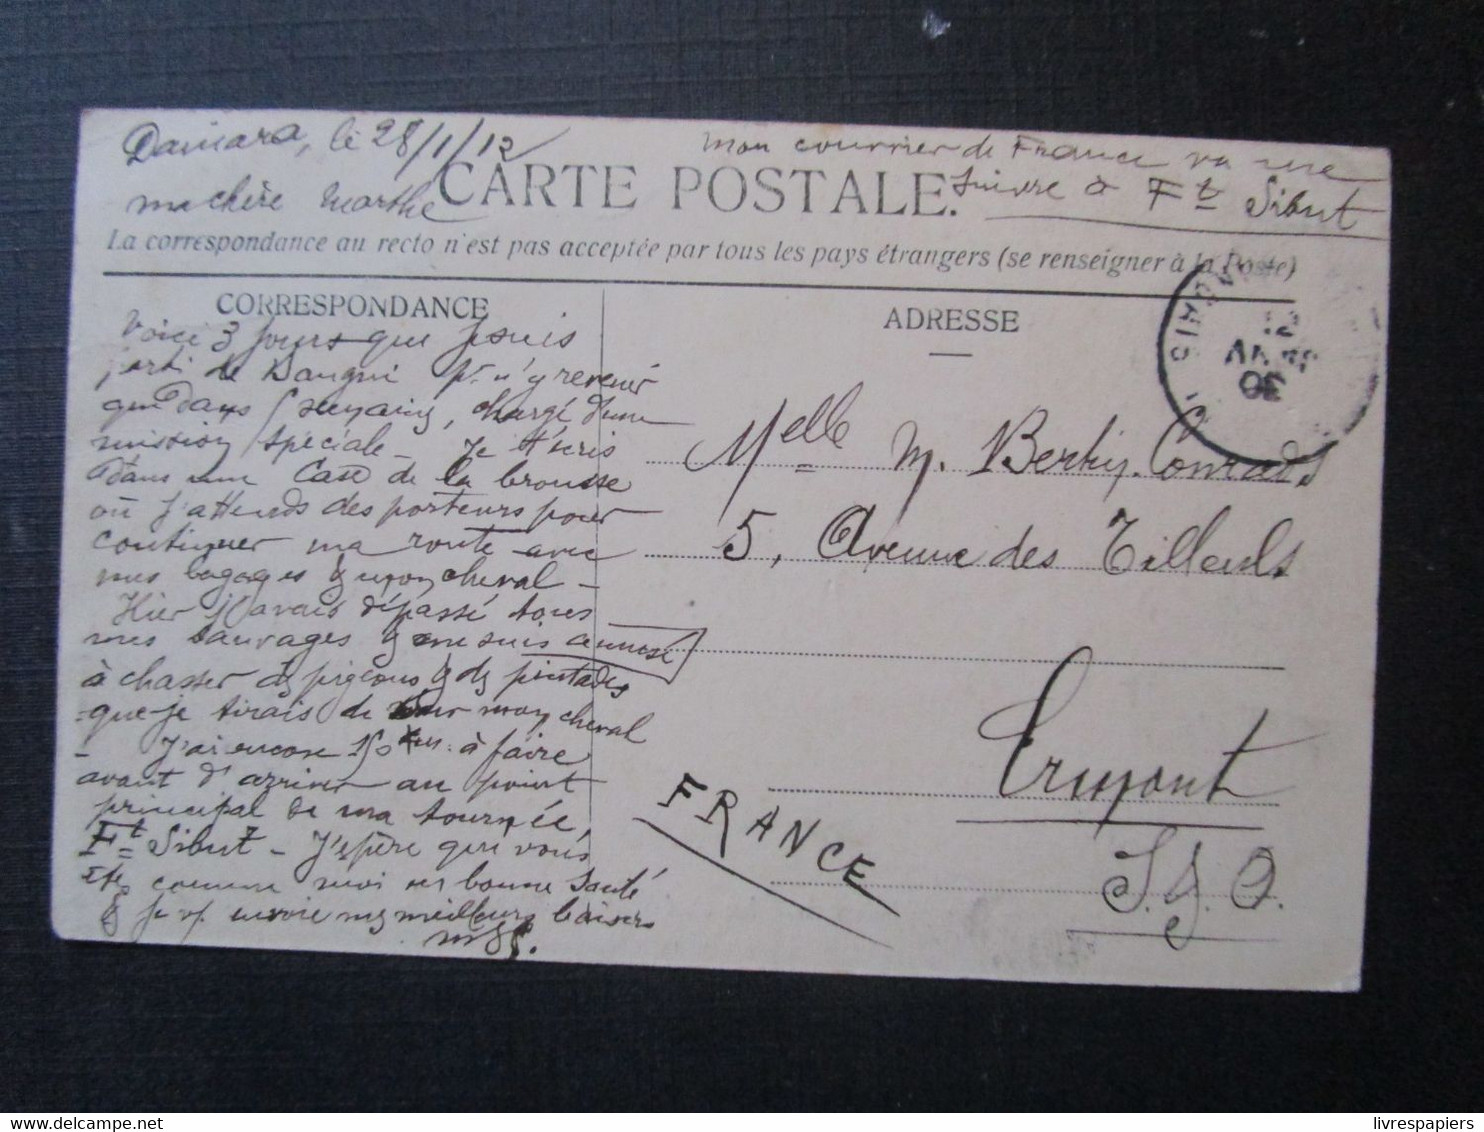 Damara, le 28/1/12
mon courrier de France va me
suivre à Ft Sibut
CARTE POSTALE.
ma chère Marthe
La correspondance au recto n'est pas acceptée par tous les pays étrangers (se renseigner à la Poste)
CORRESPONDANCE
Voici 3 jours que je suis
parti de Bangui pr n'y revenir
que dans 5 semaines, chargé d'une
mission spéciale - Je t'écris
dans une case de la brousse
où j'attends des porteurs pour
continuer ma route avec
mes bagages & mon cheval -
Hier j'avais dépassé tous
mes sauvages & me suis amusé
à chasser des pigeons & des pintades
que je tirais de sur mon cheval
- J'ai encore 150 km. à faire
avant d'arriver au point
principal de ma tournée,
Ft Sibut - J'espère que vous
êtes comme moi en bonne santé
& je vs envoie mes meilleurs baisers
ADRESSE
Melle M. Berthy-Conrads
5, Avenue des Tilleuls
Ermont
S. & O.
FRANCE
livrespapiers